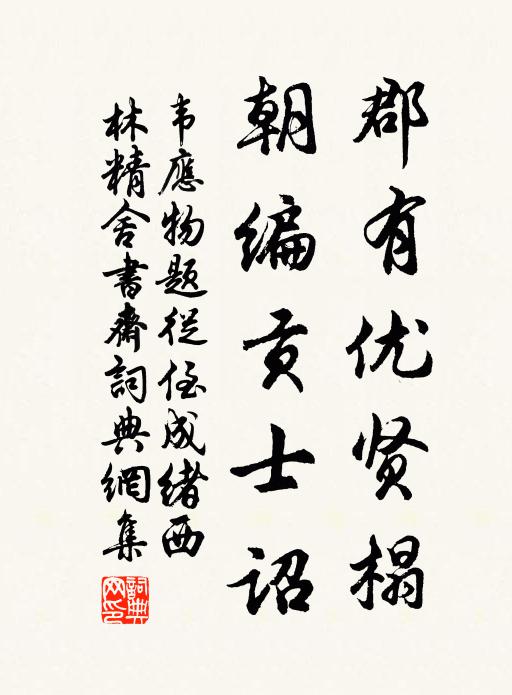 郡有优贤榻
朝编贡士诏
韦應物题從侄成绪西
林精舍書齋詞典網集
詞典網印